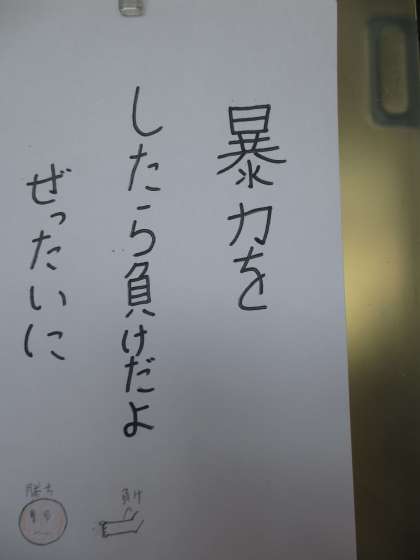 暴力を
したら負けだよ
ぜったいに
負け
勝ち